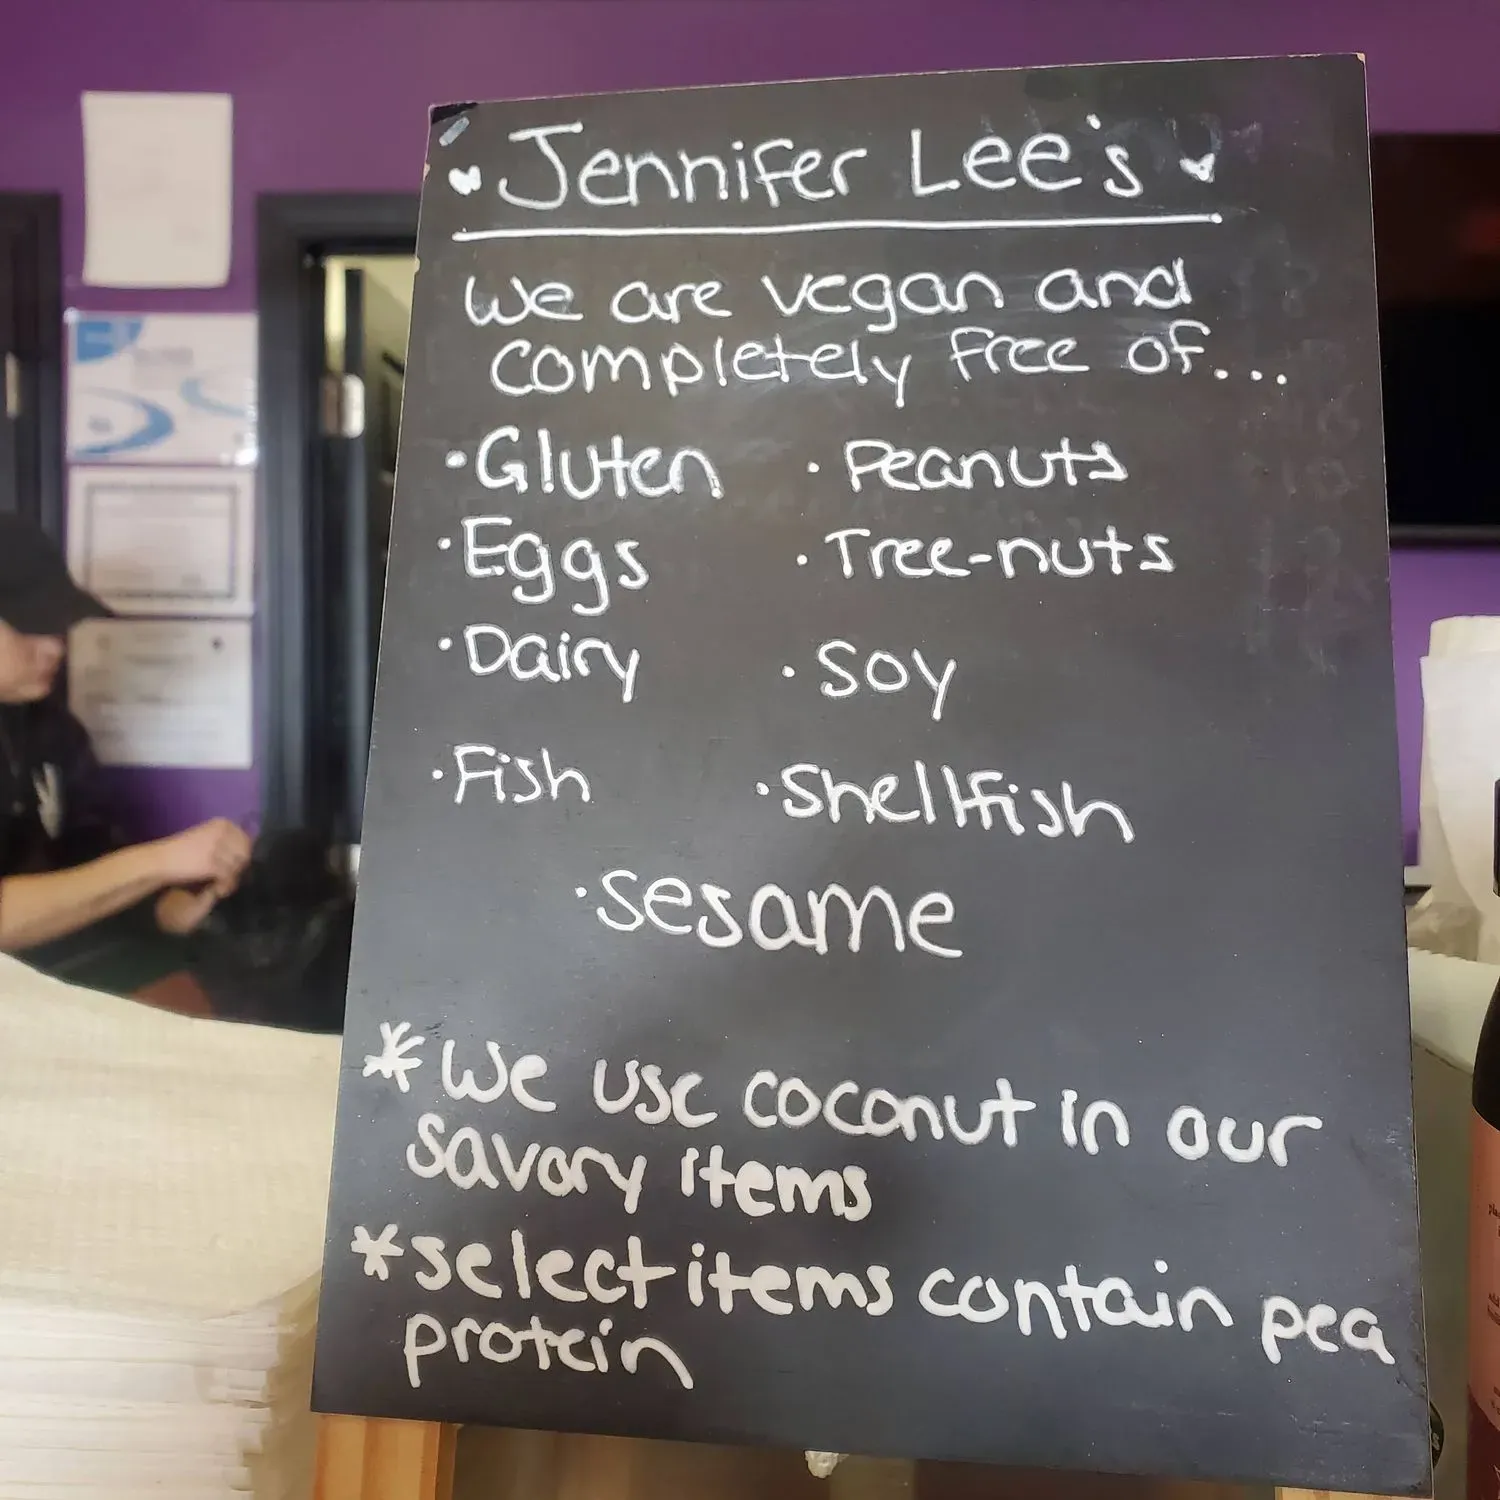 Jennifer Lee's
We are vegan and
completely free of...
• Gluten • Peanuts
• Eggs • Tree-nuts
• Dairy • Soy
• Fish • Shellfish
• Sesame
* We use coconut in our
savory items
* select items contain pea
protein